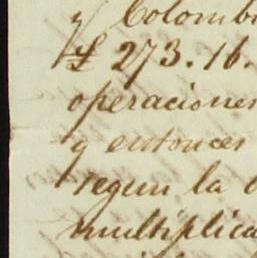 y Colombi
£ 273.16.
operaciones
y entonces
segun la
multiplica